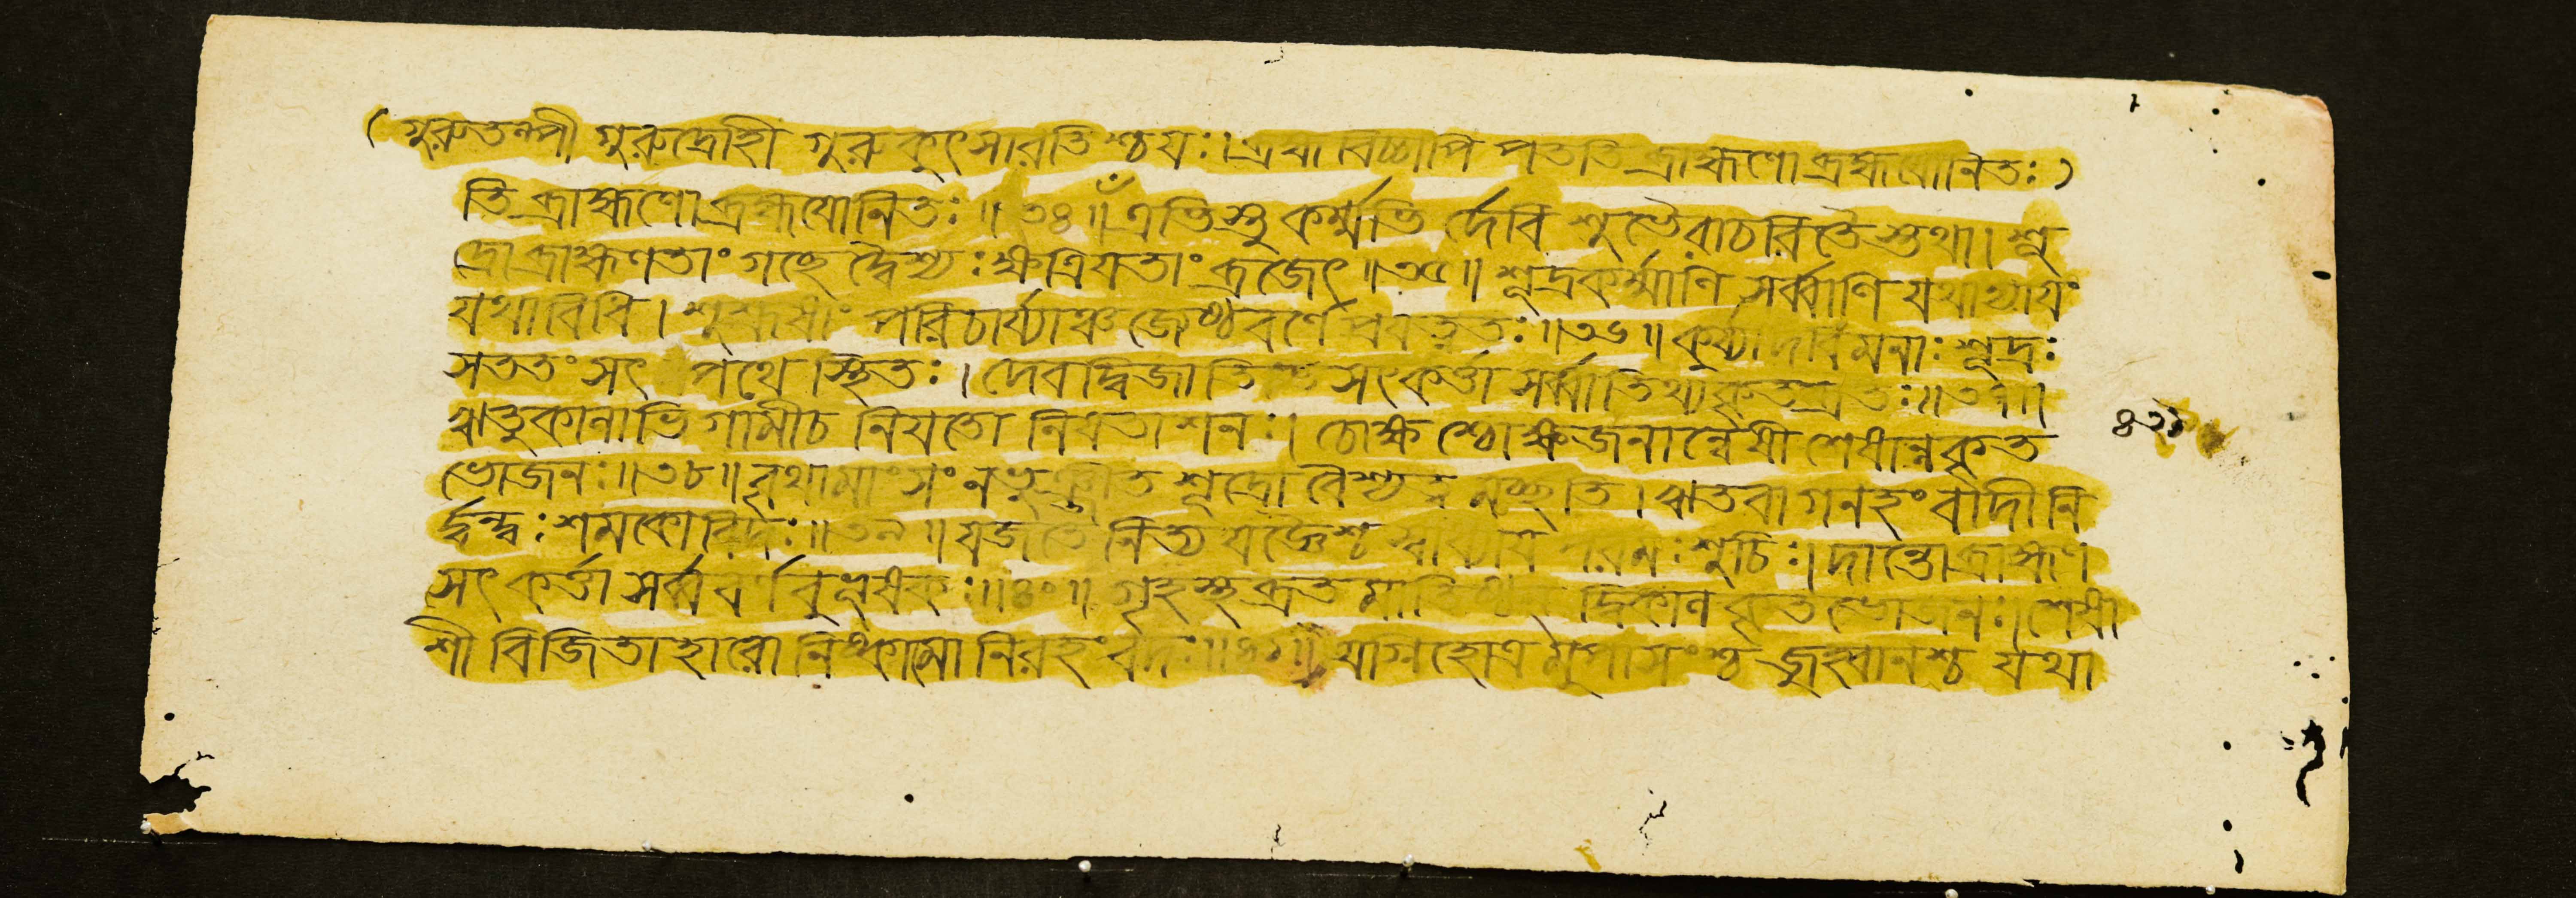 (গুরুতল্পী গুরুদ্রোহী গুরুকুৎসারতিশ্চ যঃ। ব্রহ্মবিচ্চাপি পততি ব্রাহ্মণো ব্রহ্মযোনিতঃ)
তি ব্রাহ্মণো ব্রহ্মযোনিতঃ॥৩৪॥ এভিস্তু কর্ম্মভি র্দেবি শুভৈরাচরিতৈ স্তথা। শূ
দ্রো ব্রাহ্মণতাং গচ্ছে দ্বৈশ্যঃ ক্ষত্রিযতাং ব্রজেৎ॥৩৫॥ শূদ্রকর্ম্মাণি সর্ব্বাণি যথান্যাযং
যথাবিধি। শুশ্রূষাং পরিচর্য্যাঞ্চ জ্যেষ্ঠবর্ণে প্রযত্নতঃ॥৩৬॥ কুর্য্যাদবিমনাঃ শূদ্রঃ
সততং সৎপথে স্থিতঃ। দেবদ্বিজাতিসৎকর্ত্তা সর্ব্বাতিথ্যকৃতব্রতঃ॥৩৭॥
ঋতুকালাভিগামীচ নিযতো নিযতাশনঃ। চোক্ষশ্চোক্ষজনান্বেষী শেষান্নকৃত ৪২১
ভোজনঃ॥৩৮॥ বৃথামাংসং নভুঞ্জীত শূদ্রো বৈশ্যত্বমৃচ্ছতি। ঋতবাগনহংবাদী নি
র্দ্বন্দ্বঃ শমকোবিদঃ॥৩৯॥ যজতে নিত্যযজ্ঞৈশ্চ স্বাধ্যাযপরমঃ শুচিঃ। দান্তো ব্রাহ্মণ
সৎকর্ত্তা সর্ব্ববর্ণবুভূষকঃ॥৪০॥ গৃহস্থব্রতমাতিষ্ঠন্ দ্বিকালকৃতভোজনঃ। শেষা
শী বিজিতাহারো নিষ্কামো নিরহংবদঃ॥৪১॥ অগ্নিহোত্রমুপাসংশ্চ জুহ্বানশ্চ যথা